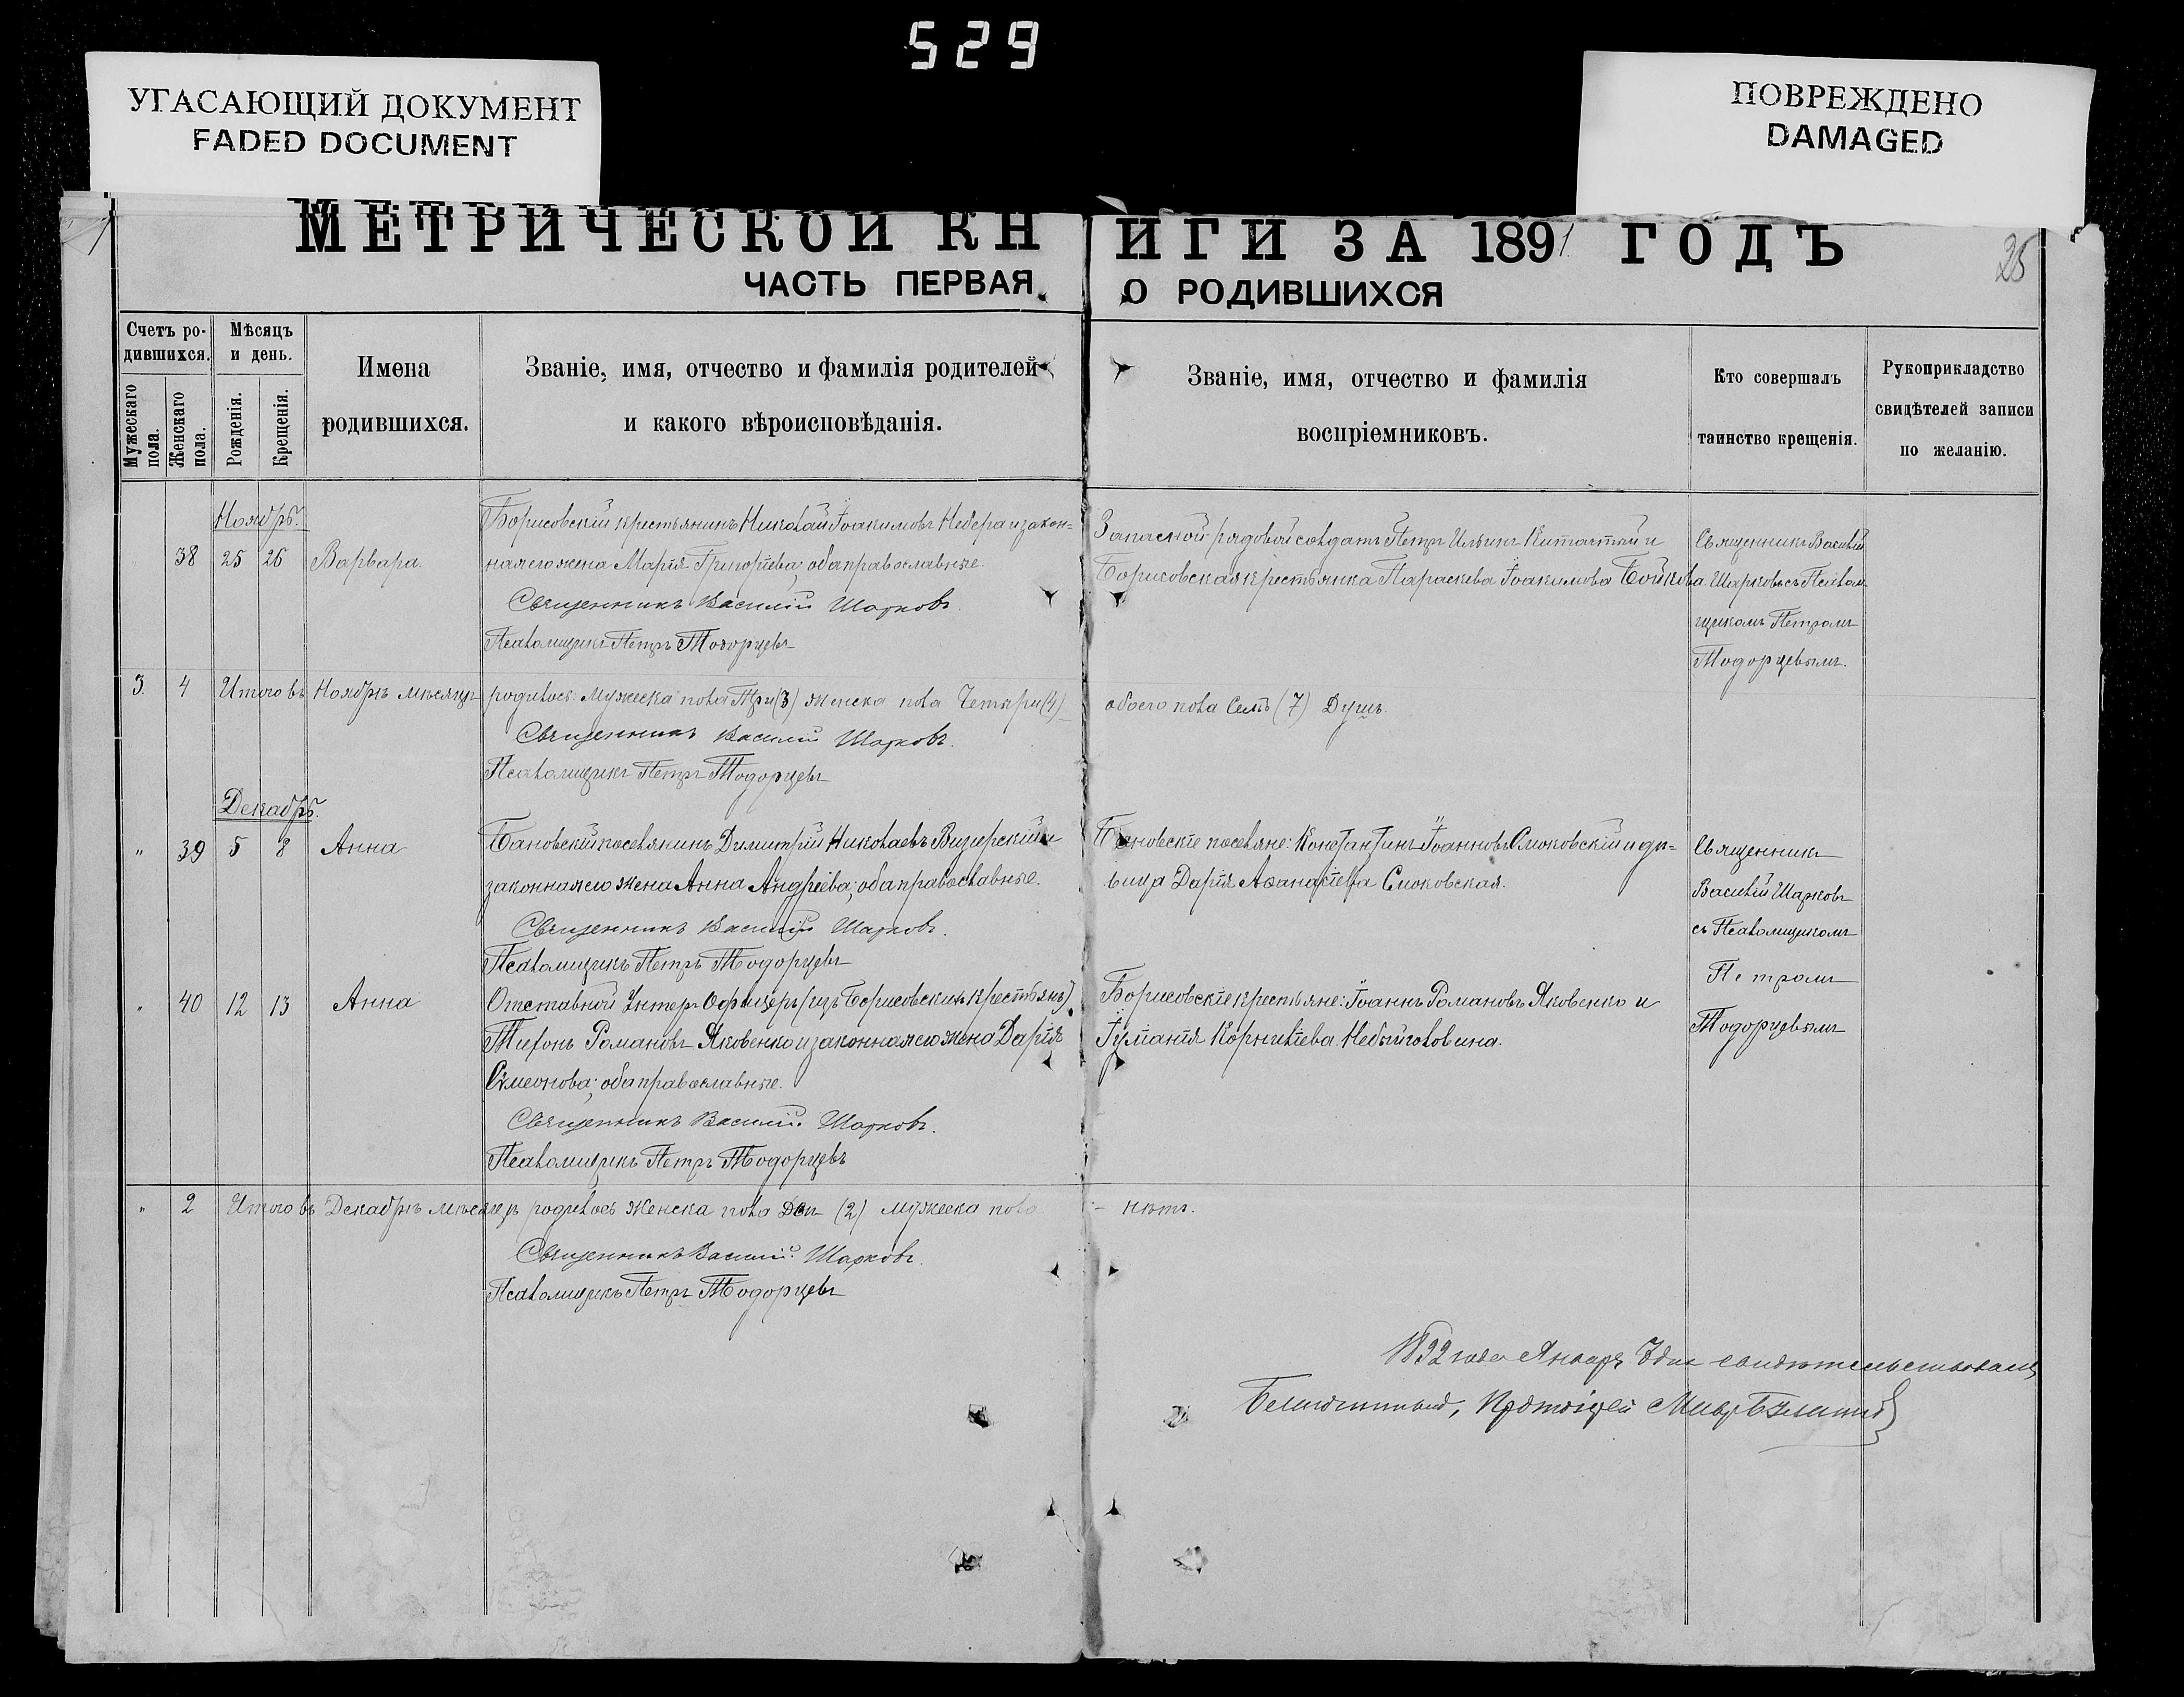 529
УГАСАЮЩИЙ ДОКУМЕНТ
FADED DOCUMENT
ПОВРЕЖДЕНО
DAMAGED
МЕТРИЧЕСКОЙ КНИГИ ЗА 1891 ГОДЪ
25
ЧАСТЬ ПЕРВАЯ О РОДИВШИХСЯ
Счетъ ро-
дившихся.
Мужескаго пола.
Женскаго пола.
Мѣсяцъ
и день.
Рожденія.
Крещенія.
Имена
родившихся.
Званіе, имя, отчество и фамилія родителей
и какого вѣроисповѣданія.
Званіе, имя, отчество и фамилія
воспріемниковъ.
Кто совершалъ
таинство крещенія.
Рукоприкладство
свидѣтелей записи
по желанію.
Ноябрь.
38 25 26 Варвара.
Борисовскій крестьянинъ Николай Іоакимовъ Небера и закон=
ная его жена Марія Григоріева; оба православные.
Священникъ Василій Шарковъ.
Псаломщикъ Петръ Тодорцевъ
Запасной рядовой солдатъ Петръ Ильинъ Китастый и
Борисовская крестьянка Параскева Іоакимова Бойкова.
Священникъ Василій
Шарковъ съ Псалом
щикомъ Петромъ
Тодорцевымъ.
3. 4 Итого въ Ноябрѣ мѣсяцѣ родилось Мужеска пола Три (3) Женска пола Четыри (4) обоего пола Семь (7) Душъ.
Священникъ Василій Шарковъ.
Псаломщикъ Петръ Тодорцевъ
Декабрь.
" 39 5 8 Анна
Бановскій поселянинъ Димитрій Николаевъ Визирскій и
законная его жена Анна Андреева; оба православные.
Священникъ Василій Шарковъ.
Псаломщикъ Петръ Тодорцевъ
Бановскіе поселяне: Константинъ Іоанновъ Смоковскій и дѣ=
вица Дарія Аѳанасіева Смоковская.
Священникъ
Василій Шарковъ
съ Псаломщикомъ
Петромъ
Тодорцевымъ
" 40 12 13 Анна
Отставной Унтеръ Офицеръ (изъ Борисовскихъ крестьянъ)
Тихонъ Романовъ Яковенко и законная его жена Дарія
Симеонова; оба православные.
Священникъ Василій Шарковъ.
Псаломщикъ Петръ Тодорцевъ
Борисовскіе крестьяне: Іоаннъ Романовъ Яковенко и
Іуліанія Корниліева
" 2 Итого въ Декабрѣ мѣсяцѣ родилось Женска пола Двѣ (2) мужеска пола – нѣтъ.
Священникъ Василій Шарковъ.
Псаломщикъ Петръ Тодорцевъ
1892 года Января дня свидѣтельствовалъ
Протоіерей